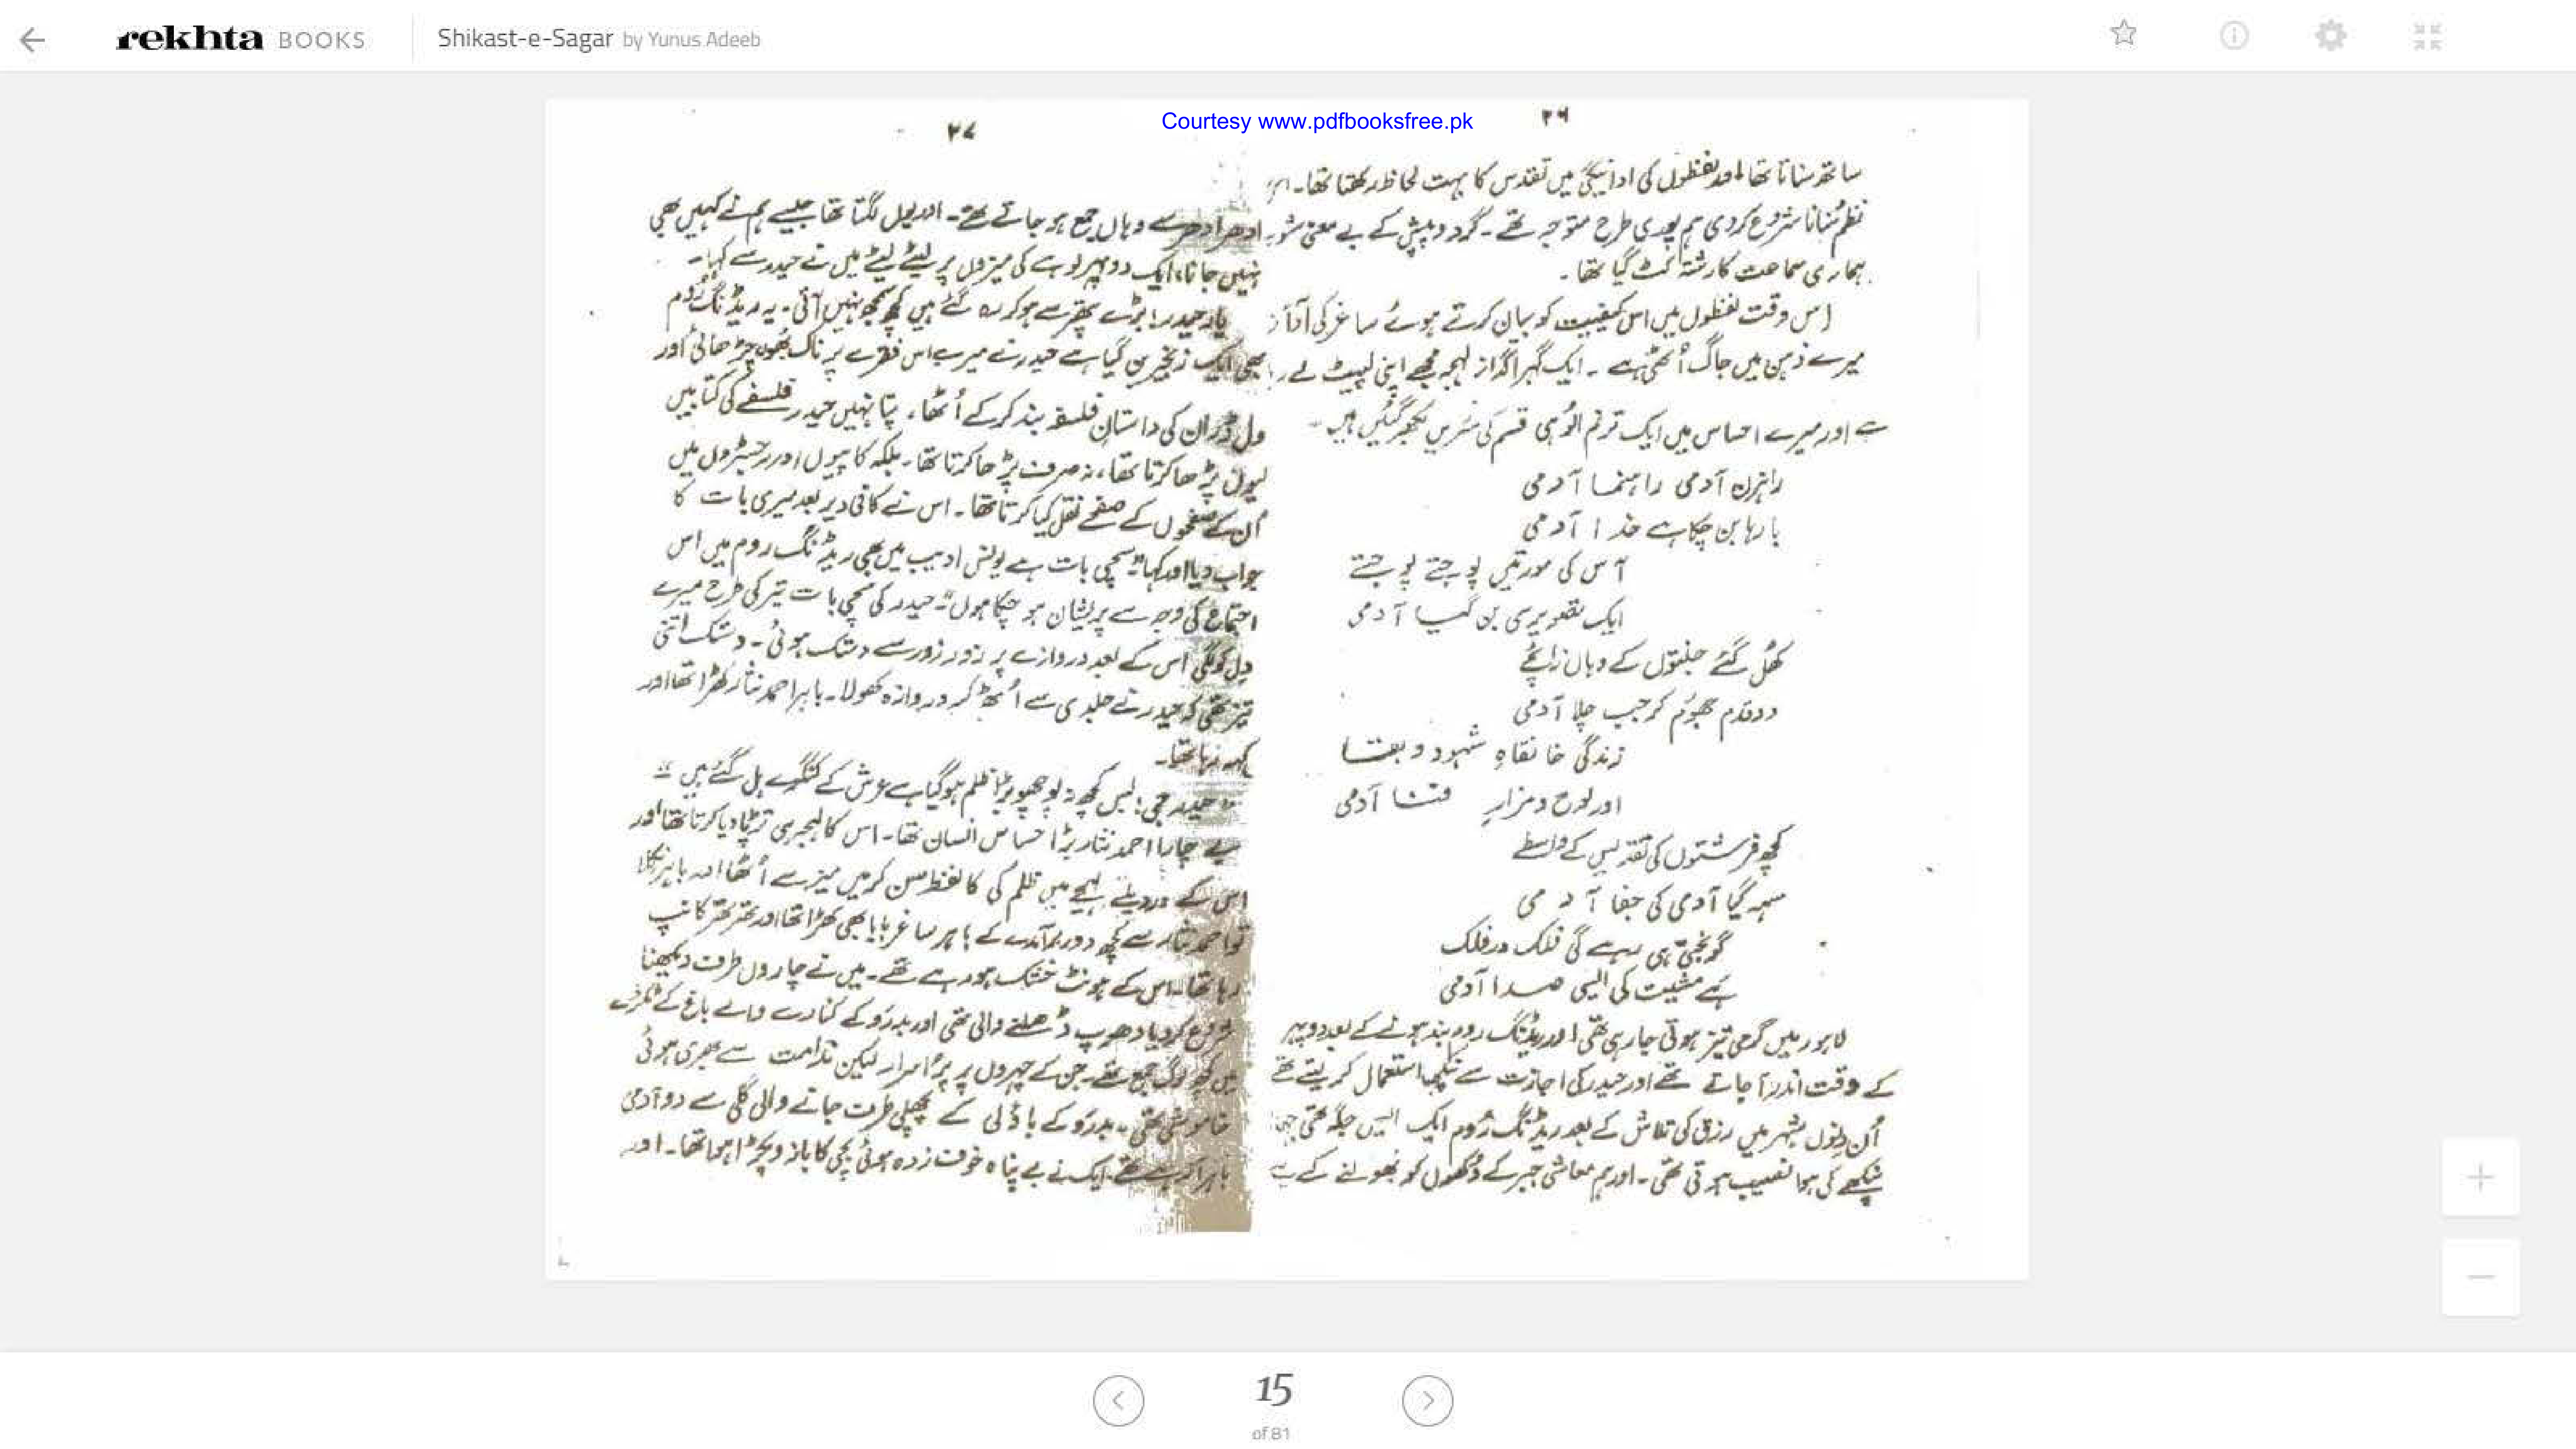 rekhta BOOKS
Shikast-e-Sagar by Yunus Adeeb
Courtesy www.pdfbooksfree.pk
۲۶
ساتھ سناتا تھا اور لفظوں کی ادائیگی میں تقدس کا بہت لحاظ رکھتا تھا۔
نظم سُنانا شروع کر دی ہم پوری طرح متوجہ تھے۔ گرد و پیش کے بے معنی شور
ہماری سماعت کا رشتہ کٹ گیا تھا۔
اس وقت لفظوں میں اس کیفیت کو بیان کرتے ہوئے ساغر کی آواز
میرے ذہن میں جاگ اُٹھی ہے۔ ایک گہرا گداز لہجہ مجھے اپنی لپیٹ لے رہا
ہے اور میرے احساس میں ایک ترنم الوہی قسم کی سُریں بکھر گئیں ہیں۔
راہزن آدمی راہنما آدمی
بارہا بن چکا ہے خدا آدمی
آس کی مورتیں پوجتے پوجتے
ایک تصویر سی بن گیا آدمی
کھُل گئے جنتوں کے وہاں زائچے
دو قدم جھوم کر جب چلا آدمی
زندگی خانقاہِ شہود و بقا
اور لوحِ مزارِ فنا آدمی
کچھ فرشتوں کی تقدیس کے واسطے
سہہ گیا آدمی کی جفا آدمی
گونجتی ہی رہے گی فلک در فلک
ہے مشیت کی ایسی صدا آدمی
لاہور میں گرمی تیز ہوتی جا رہی تھی اور ریڈنگ روم بند ہونے کے بعد دوپہر
کے وقت اندر آ جاتے تھے اور حیدر کی اجازت سے پنکھا استعمال کر لیتے تھے
اُن دِنوں شہر میں رزق کی تلاش کے بعد ریڈنگ رُوم ایک ایسی جگہ تھی جہاں
پنکھے کی ہوا نصیب ہوتی تھی۔ اور ہم معاشی جبر کے دُکھوں کو بھولنے کے لیے
۲۷
ادھر اُدھر سے وہاں جمع ہو جاتے تھے۔ اور یوں لگتا تھا جیسے ہم نے کہیں بھی
نہیں جانا، ایک دوپہر لوہے کی میزوں پر لیٹے لیٹے میں نے حیدر سے کہا۔
یار حیدر! بڑے پتھر سے ہو کر رہ گئے ہیں کچھ سمجھ نہیں آتی۔ یہ ریڈنگ رُوم
بھی ایک زنجیر بن گیا ہے حیدر نے میرے اس فقرے پر ناک بھوں چڑھائی اور
ول ڈُران کی داستانِ فلسفہ بند کر کے اُٹھا، پتا نہیں حیدر فلسفے کی کتابیں
کیوں پڑھا کرتا تھا، نہ صرف پڑھا کرتا تھا۔ بلکہ کاپیوں اور رجسٹروں میں
اُن کے صفحوں کے صفحے نقل کیا کرتا تھا۔ اس نے کافی دیر بعد میری بات کا
جواب دیا اور کہا "سچی بات ہے یونس ادیب میں بھی ریڈنگ روم میں اس
اجتماع کی وجہ سے پریشان ہو چکا ہوں"۔ حیدر کی سچی بات تیر کی طرح میرے
دِل کو لگی اس کے بعد دروازے پر زور زور سے دستک ہوئی۔ دستک اتنی
تیز تھی کہ حیدر نے جلدی سے اُٹھ کر دروازہ کھولا۔ باہر احمد نثار کھڑا تھا اور
کہہ رہا تھا۔
"حیدر جی! بس کچھ نہ پوچھو بڑا ظلم ہو گیا ہے عرش کے کنگرے ہل گئے ہیں"
بے چارا احمد نثار بڑا حساس انسان تھا۔ اس کا لہجہ ہی تڑپا دیا کرتا تھا اور
اس کے دردیلے لہجے میں ظلم کی کا لفظ سن کر میں میز سے اُٹھا اور باہر نکلا
تو احمد نثار سے کچھ دور برآمدے کے باہر ساغر بابا بھی کھڑا تھا اور تھر تھر کانپ
رہا تھا۔ اس کے ہونٹ خشک ہو رہے تھے۔ میں نے چاروں طرف دیکھنا
شروع کر دیا دھوپ ڈھلنے والی تھی اور بدرَو کے کنارے والے باغ کے ٹکڑے
میں کچھ لوگ جمع تھے۔ جن کے چہروں پر پُر اسرار لیکن ندامت سے بھری ہوئی
خاموشی تھی۔ بدرَو کے باؤلی کے پچھلی طرف جانے والی گلی سے دو آدمی
باہر آ رہے تھے۔ ایک نے بے پناہ خوف زدہ ہوئی بچی کا بازو پکڑا ہوا تھا۔ اور
15
of 81